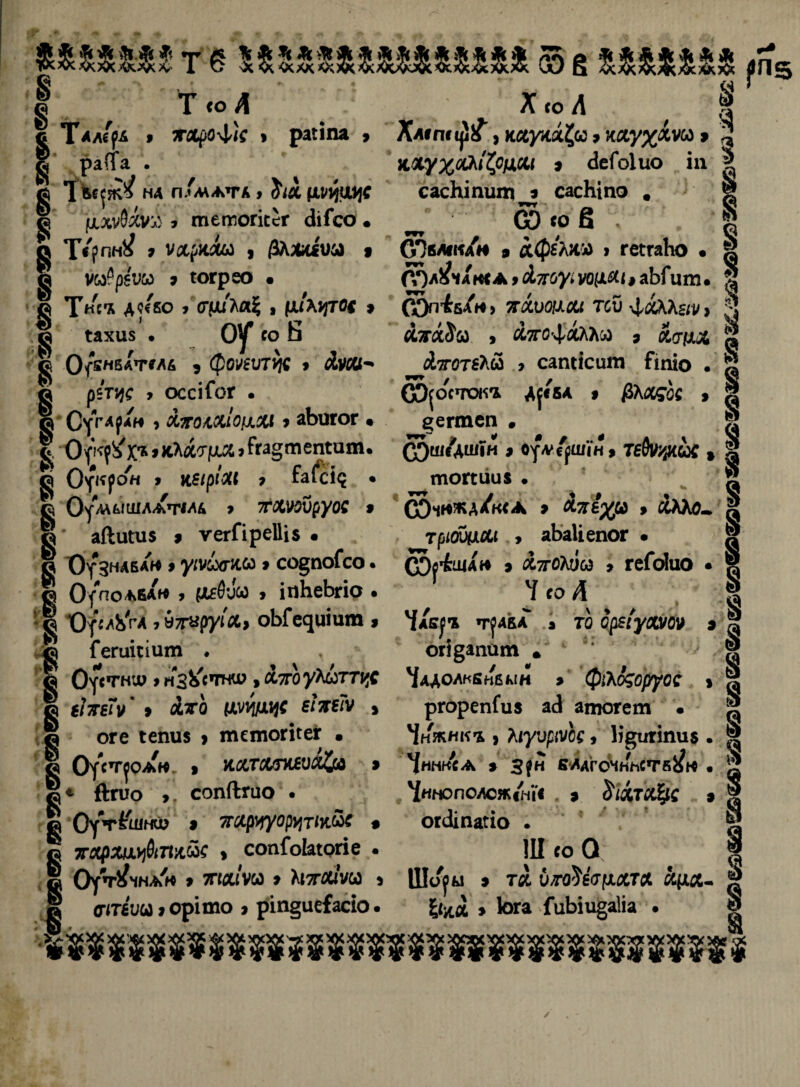 Т со А
Талерь , παροψὶς , patina ,
paſſa .
Твержꙋ на памѧть , διὰ μνήμης
μανθάνω , memoriter diſco .
Терпнꙋ , ναρκάω , βλακεύω ,
νωθρεύω , torpeo .
Тисъ древо , σμίλαξ , μίλητος ,
taxus .
Оу со Б
Оубиватель , φονευτὴς , ἀναι-
ρέτης , occiſor .
Оугараю , ἀπολαίομαι , aburor .
Оукрꙋхъ , κλάσμα , fragmentum.
Оукрои , κειρίαι , faſcię .
Оумышлѧтель , πανοῦργος ,
aſtutus , verſipellis .
Оузнаваю , γινώσκω , cognoſco .
Оупоѧваю , μεθύω , inhebrio .
Оуслꙋга , ὑπουργία, obſequium ,
ſeruitium .
Оустнѡ , изꙋстнѡ , ἀπὸ γλώττης
εἰπεῖν , ἀπὸ μνήμης εἰπεῖν ,
ore tenus , memoriter .
Оустроѧю , κατασκευάζω ,
ſtruo , conſtruo .
Оутѣшнѡ , παρηγορητικῶς ,
παραμυθιτικῶς , conſolatorie .
Оутꙋчнѧю , πιαίνω , λιπαίνω ,
σιτεύω , opimo , pinguefacio .
Х со А
καγκάζω , καγχάνω ,
καγχαλίζομαι , defoluo in
cachinum , cachino .
Ѿ со Б
Ѿвлекаю , ἀφέλκω , retraho .
Ѿлꙋчаюсѧ , ἀπογίνομαι , abſum.
Ѿпѣваю , παύομαι τοῦ ψάλλειν ,
ἀπάδω , ἀποψάλλω , ἄσμα
ἀποτελῶ , canticum finio .
Ѿростокъ древа , βλαςὸς ,
germen .
Ѿшедшїй , оумершїй , τεθνηκὼς ,
mortuus .
Ѿчюждаюсѧ , ἀπέχω , ἀλλο-
τριοῦμαι , abalienor .
Ѿрѣшаю , ἀπολύω , reſoluo .
Ч со А
Чабръ трава , τὸ ὀρείγανον ,
origanum .
Чадолюбивый , φιλόςοργος ,
propenſus ad amorem .
Чижикъ , λιγυρινὸς , ligurinus .
Чинюсѧ , зри благочинствꙋю .
Чиноположенїе , διάταξις ,
ordinatio .
Ш со О
Шоры , τὰ ὑποδέσματα ἁμα-
ξικὰ , lora ſubiugalia .